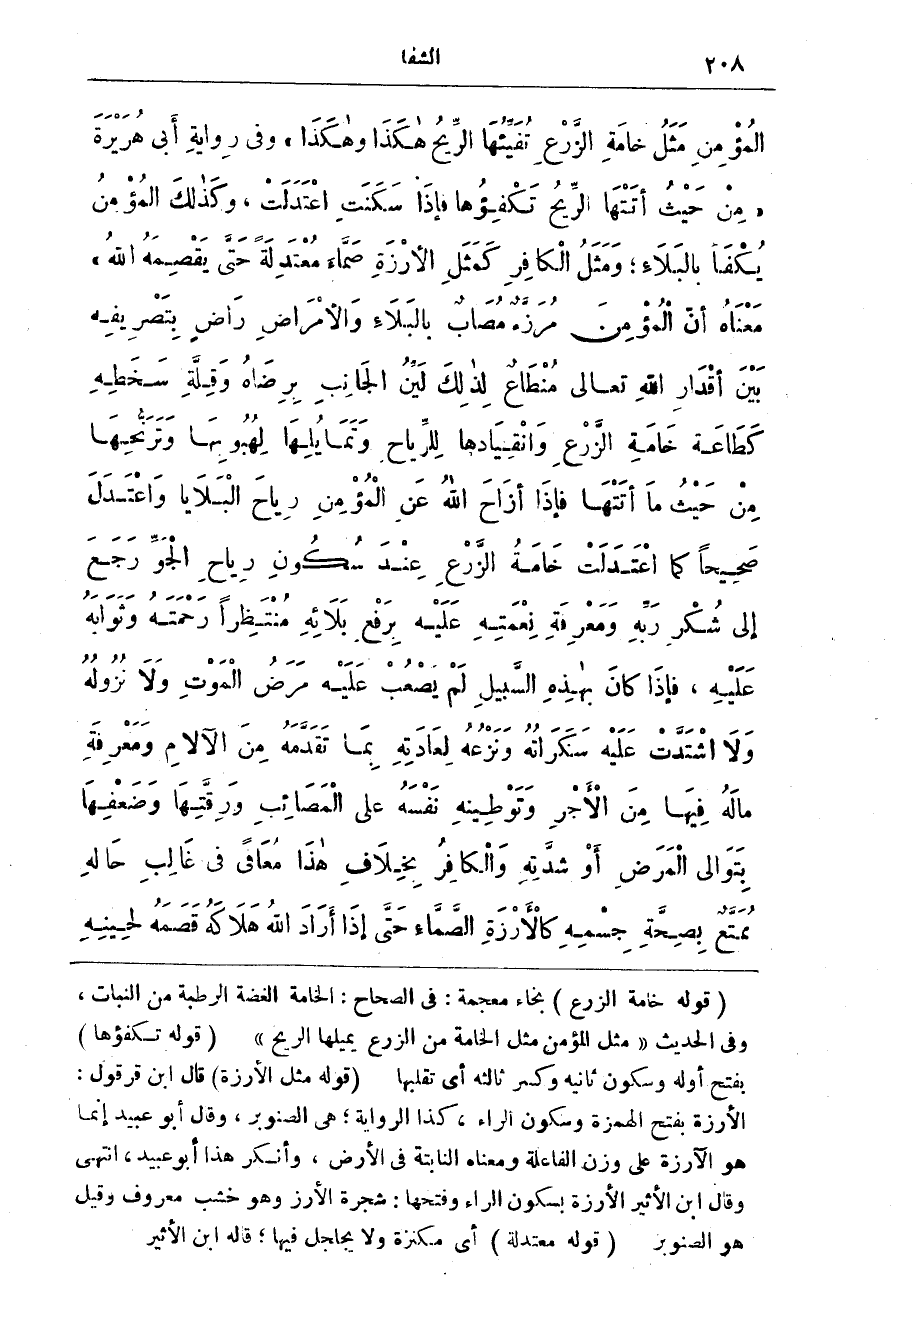 ٢٠٨ الشفا
المُؤْمِنِ مَثَلُ خامَةِ الزَّرْعِ تُفَيِّئُهَا الرِّيحُ هٰكَذَا وهٰكَذَا » وفى رِوايةِ أَبى هُرَيْرَةَ
« مِنْ حَيْثُ أَتَتْهَا الرِّيحُ تَكْفِؤُها فإذَا سَكَنَتِ اعْتَدَلَتْ ، وكَذٰلكَ المُؤْمِنُ
يُكْفَأُ بالبَلَاءِ ؛ ومَثَلُ الْكافِرِ كَمَثَلِ الأَرْزَةِ صَمَّاءَ مُعْتَدِلَةً حَتَّى يَقْصِمَهُ اللهُ »
مَعْنَاه أنَّ الْمُؤْمِنَ مُرَزَّءٌ مُصَابٌ بالبَلَاءِ وَالأمْرَاضِ رَاضٍ بِتَصْرِيفِهِ
بَيْنَ أقْدَارِ اللهِ تعالى مُنْطَاعٌ لِذٰلِكَ لَيِّنُ الجَانِبِ بِرِضَاهُ وَقِلَّةِ سَخَطِهِ
كَطَاعَةِ خَامَةِ الزَّرْعِ وَانْقِيَادِها للرِّياحِ وَتَمَايُلِهَا لِهُبُوبِهَا وَتَرَنُّحِهَا
مِنْ حَيْثُ مَا أتَتْهَا فإذَا أزَاحَ اللهُ عَنِ الْمُؤْمِنِ رِياحَ الْبَلَايا وَاعْتَدَلَ
صَحِيحاً كما اعْتَدَلَتْ خَامَةُ الزَّرْعِ عِنْدَ سُكُونِ رِياحِ الجَوِّ رَجَعَ
إلى شُكْرِ رَبِّهِ وَمَعْرِفَةِ نِعْمَتِهِ عَلَيْهِ بِرَفْعِ بَلَائِهِ مُنْتَظِراً رَحْمَتَهُ وَثَوَابَهُ
عَلَيْهِ ، فإذَا كانَ بهٰذِهِ السَّبِيلِ لَمْ يَصْعُبْ عَلَيْهِ مَرَضُ المَوْتِ وَلَا نُزُولُهُ
وَلَا اشْتَدَّتْ عَلَيْهِ سَكَرَاتُهُ وَنَزْعُهُ لِعَادَتِهِ بِمَا تَقَدَّمَهُ مِنَ الآلامِ وَمَعْرِفَةِ
مالَهُ فِيهَا مِنَ الْأَجْرِ وَتَوْطِينِهِ نَفْسَهُ على الْمَصَائِبِ وَرِقَّتِهَا وَضَعْفِهَا
بِتَوَالى الْمَرَضِ أوْ شدَّتِهِ وَالْكافِرُ بِخِلَافِ هٰذَا مُعَافًى فى غَالِبِ حَالهِ
مُمَتَّعٌ بِصِحَّةِ جِسْمِهِ كالْأَرْزَةِ الصَّمَّاءِ حَتَّى إذَا أَرَادَ اللهُ هَلَاكَهُ قَصَمَهُ لِحِينِهِ
( قوله خامة الزرع ) بخاء معجمة : فى الصحاح : الخامة الغضة الرطبة من النبات ،
وفى الحديث « مثل المؤمن مثل الخامة من الزرع يميلها الريح » ( قوله تكفؤها )
بفتح أوله وسكون ثانيه وكسر ثالثه أى تقلبها (قوله مثل الأرزة) قال ابن قرقول :
الأرزة بفتح الهمزة وسكون الراء ، كذا الرواية ؛ هى الصنوبر ، وقال أبو عبيد إنما
هو الآرزة على وزن الفاعلة ومعناه النابتة فى الأرض ، وأنكر هذا أبو عبيد ، انتهى
وقال ابن الأثير الأرزة بسكون الراء وفتحها : شجرة الأرز وهو خشب معروف وقيل
هو الصنوبر ( قوله معتدلة ) أى مكنزة ولا يجلجل فيها ؛ قاله ابن الأثير